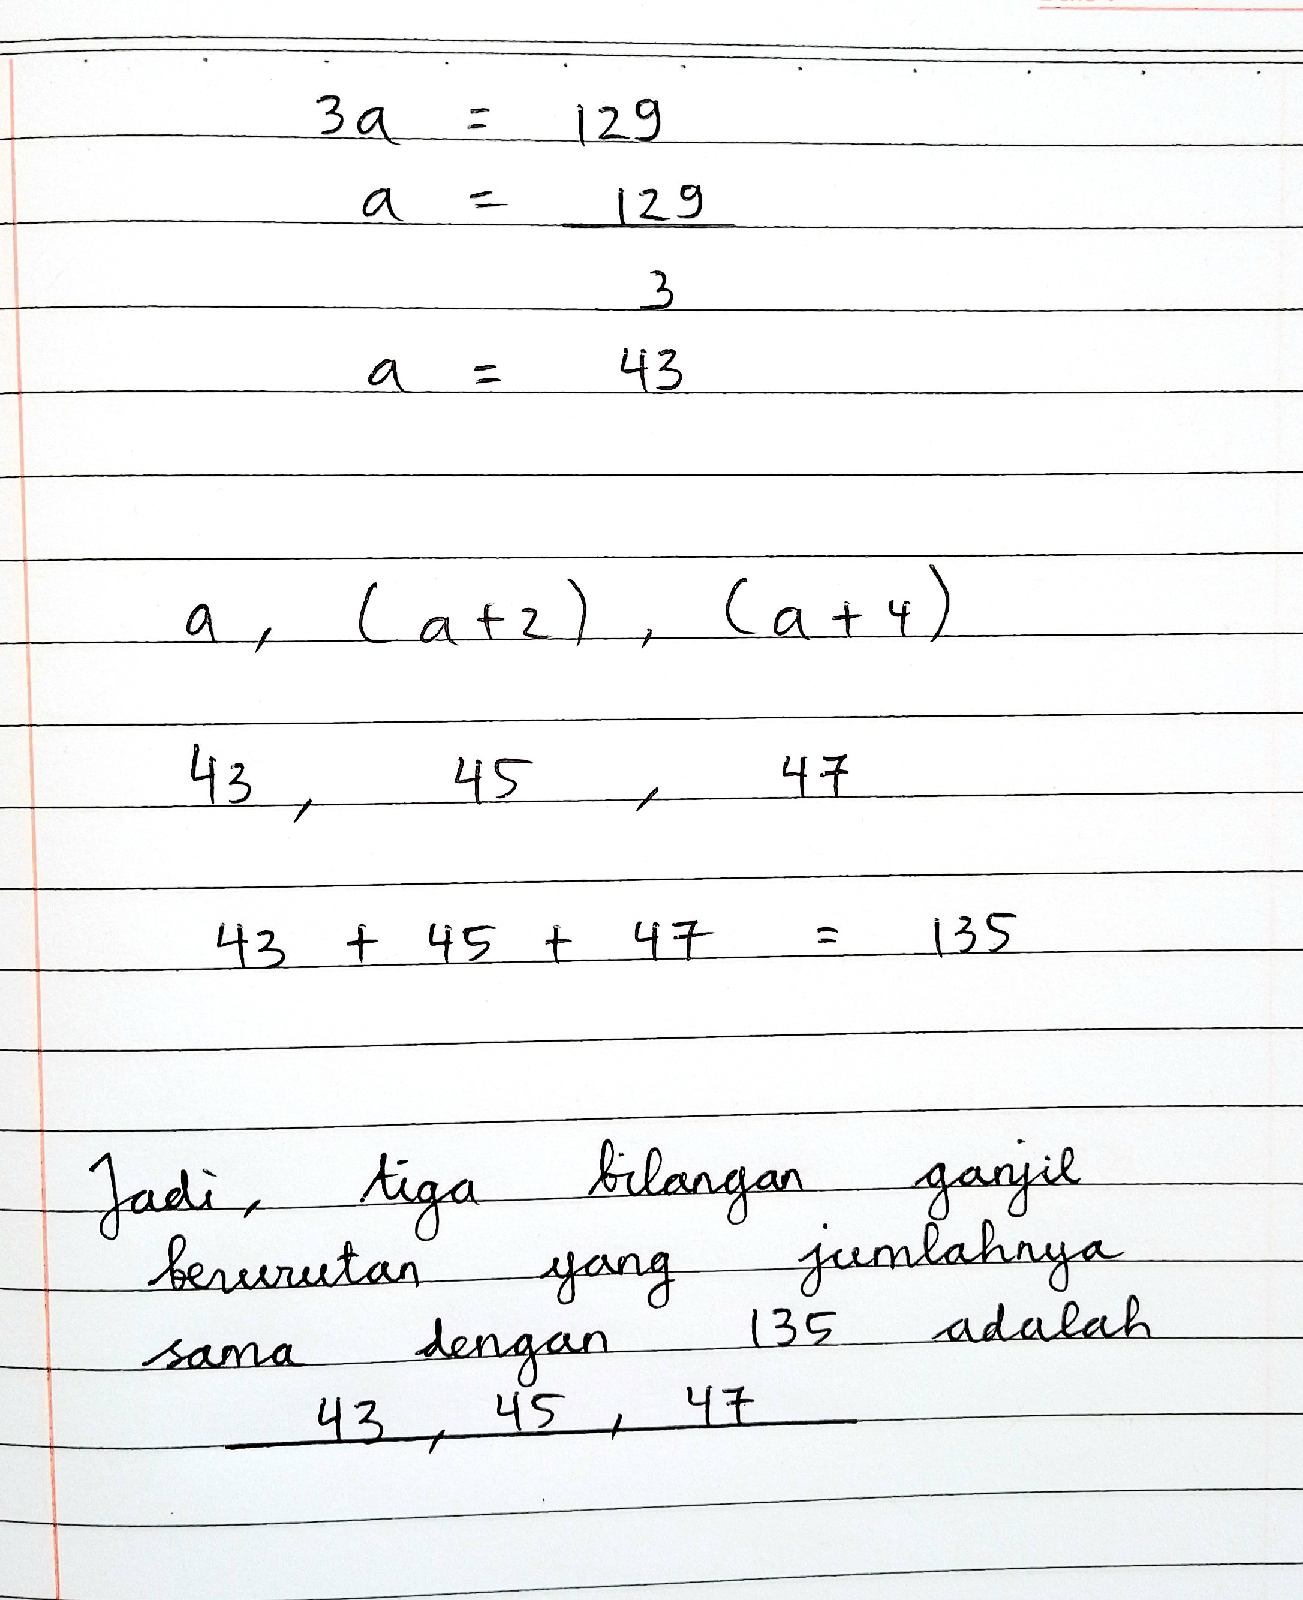 3a = 129
a = 129
3
a = 43
a, (a+2), (a+4)
43, 45, 47
43 + 45 + 47 = 135
Jadi, tiga bilangan ganjil
berurutan yang jumlahnya
sama dengan 135 adalah
43, 45, 47